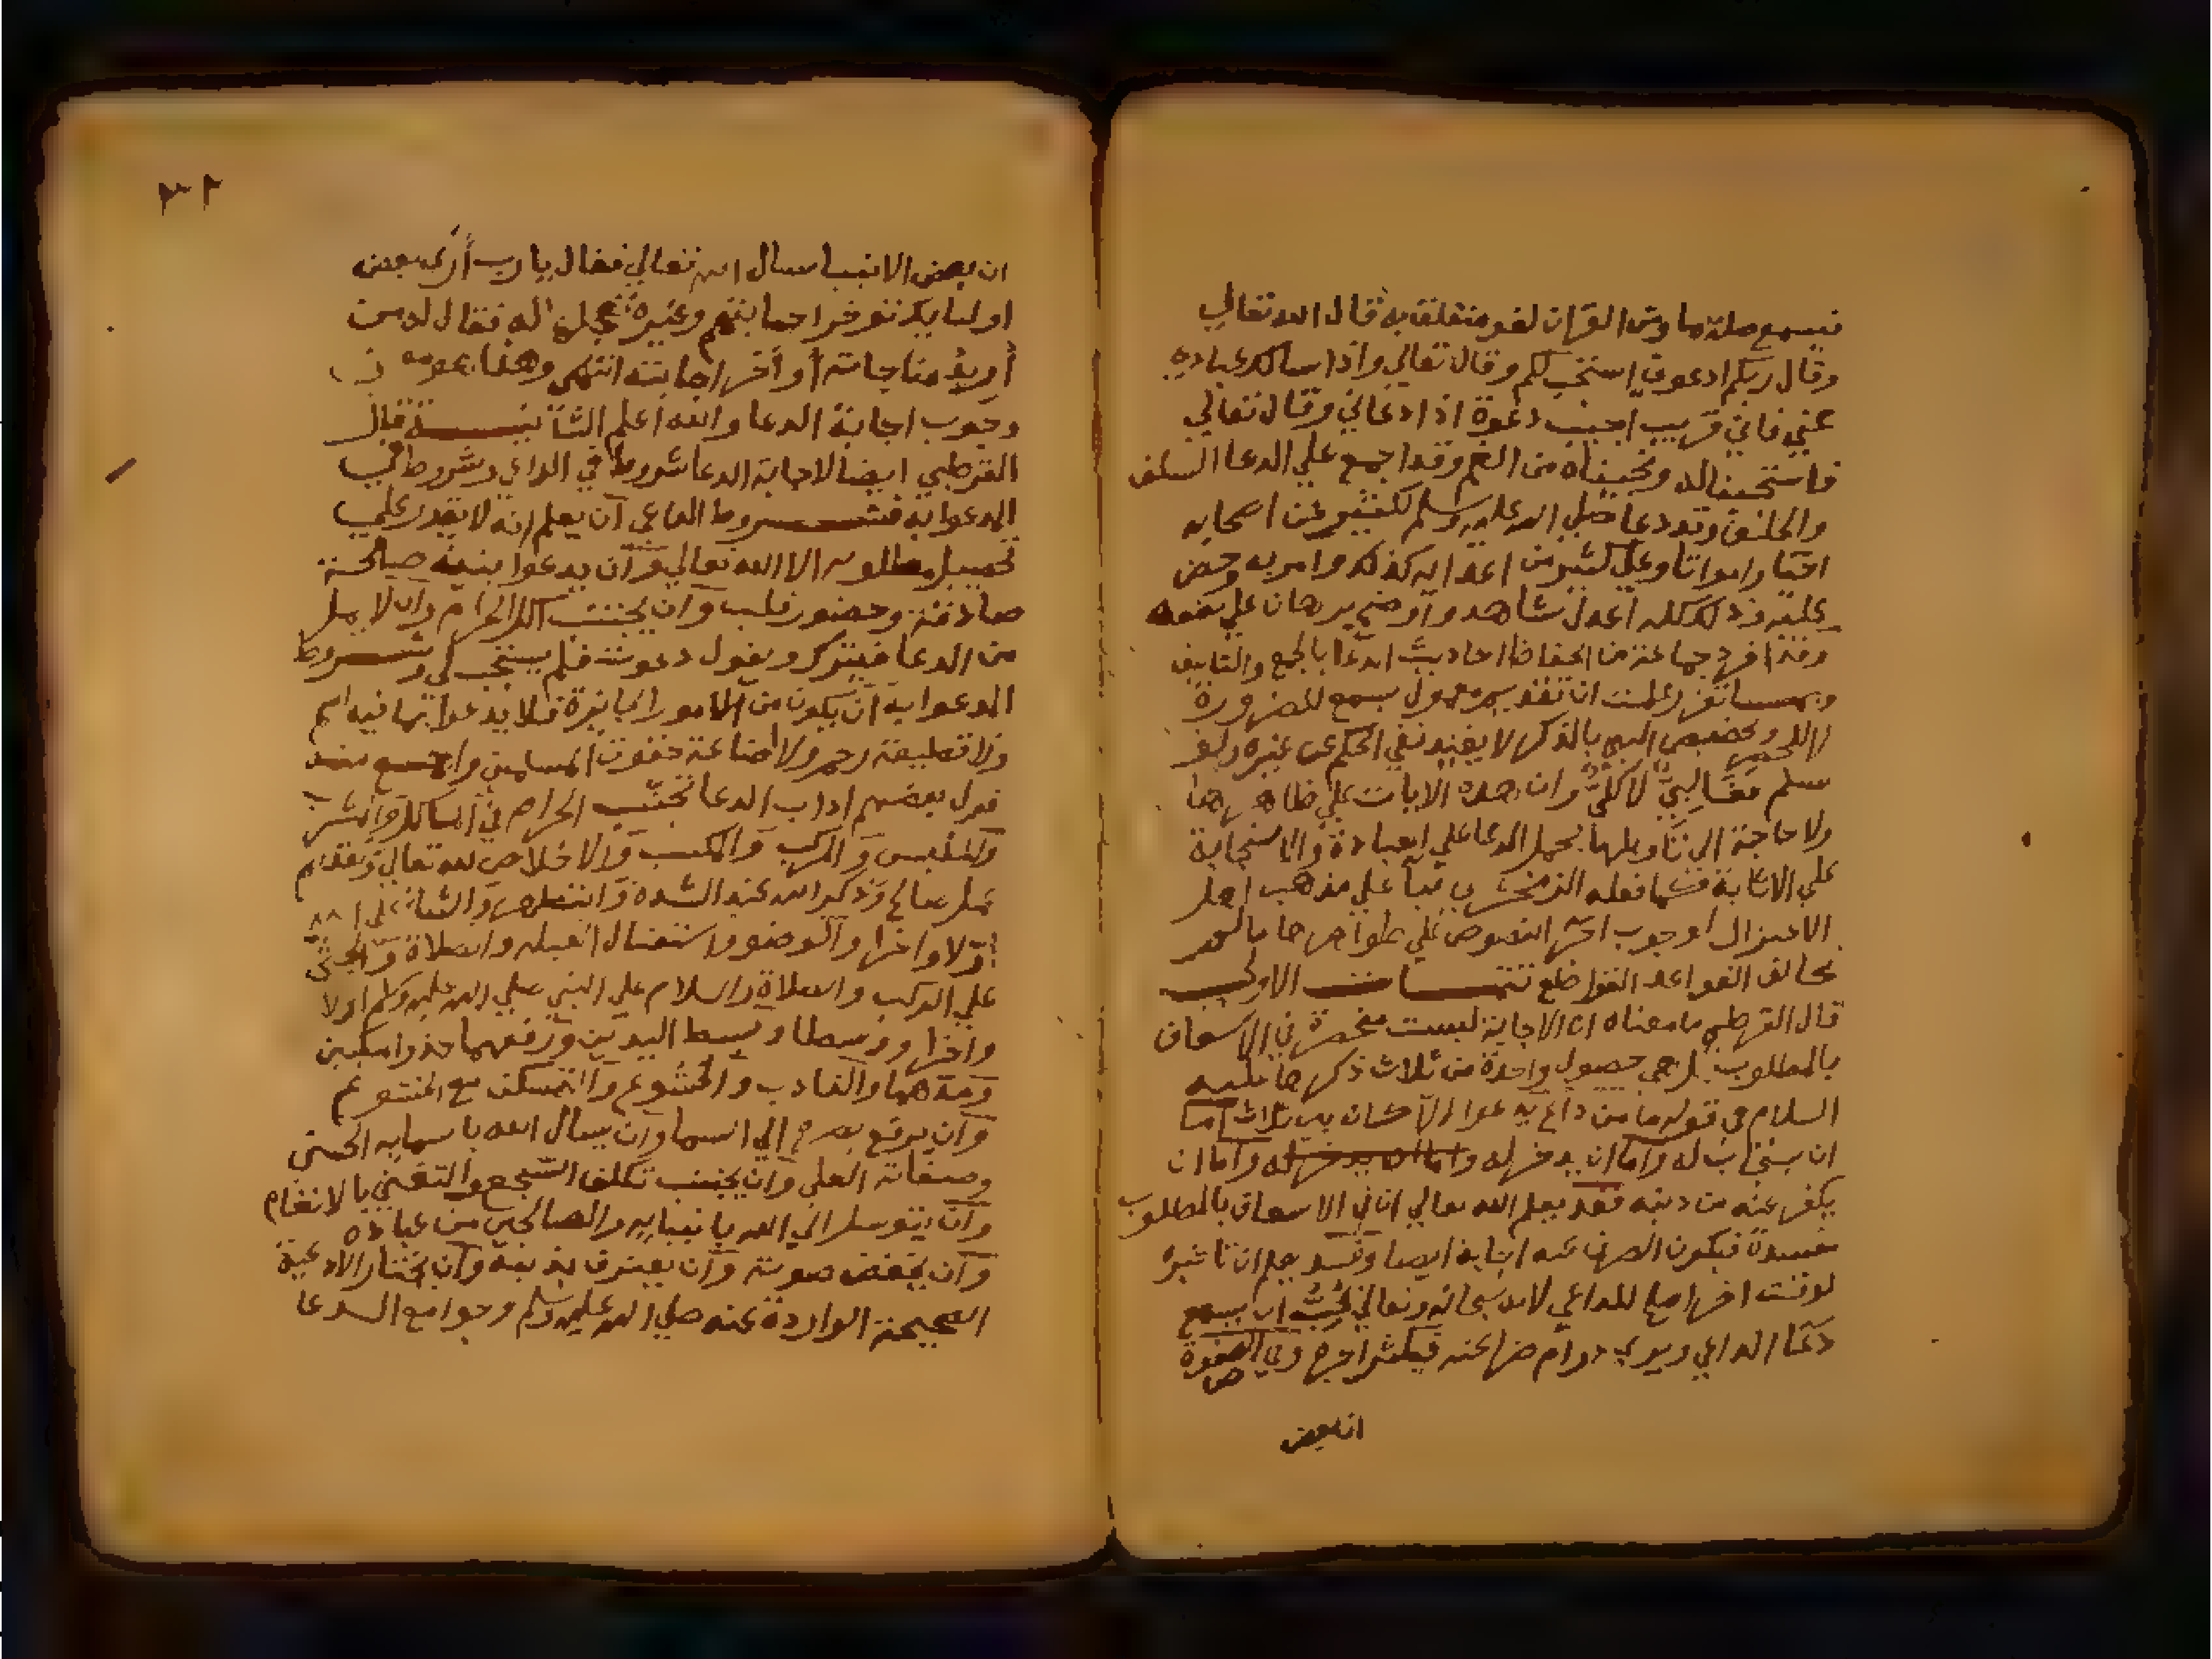 فيسمع صلة ما وش القران لغو متعلق به قال الله تعالي
وقال ربكم ادعوني استجب لكم وقال تعالي واذا سالك عبادي
عني فاني قريب اجيب دعوة اذا دعاني وقال تعالي
فاستجبنا له ونجيناه من الغم وقد اجمع علي الدعا السلف
والخلف وقد دعا صلي الله عليه وسلم لكثير من اصحابه
احيا وامواتا وعلي كثير من اعدايه كذلك وامر به وحض
عليه وذلك كله اعدل شاهد واوضح برهان علي نفعه
وقد افرد جماعة من الحفاظ احاديث الدعا بالجمع والتاليف
وبما تقرر علمت ان تقديم معمول يسمع للضرورة
لا للحصر وتخصيص البهم بالذكر لا يفيد نفي الحكم عن غيره ولو
سلم فغالبي لا كلي وان هذه الايات علي ظاهرها
ولا حاجة الي تاويلها بحمل الدعا علي العبادة والاستجابة
علي الاثابة كما فعله الزمخشري علي مذهب اهل
الاعتزال لوجوب النصوص علي ظواهرها ما لم
يخالف القواعد القواطع تتمات الاولي
قال القرطبي ما معناه ان الاجابة ليست منحصرة في الاسعاف
بالمطلوب بل هي حصول واحدة من ثلاث ذكرها عليه
السلام في قوله ما من داع يدعوا الا كان بين ثلاث اما
ان يستجاب له واما ان يدخر له واما ان يدخر له واما ان
يكفر عنه من ذنبه فقد يعلم الله تعالي ان في الاسعاف بالمطلوب
مفسدة فيكون الصرف عنه اجابة ايضا وقد يعلم ان تاخيره
لوقت اخر اصلح للداعي لانه سبحانه وتعالي يحب ان يسمع
دعا الداعي ويري دوام ضراعته فيكثر اجره وفي الصفوة
ان بعض
٣٢
ان بعض الانبيا سال الله تعالي فقال يا رب أرى بعض
اوليايك تؤخر اجابتهم وغيره تعجلها له فقال له من
أريد مناجاته أو أخر اجابته انتهى وهذا
وجوب اجابة الدعا والله اعلم الثانيـة قال
القرطبي ايضا لاجابة الدعا شروط في الداعي وشروط في
المدعوا به فشـروط الداعي أن يعلم انه لا يقدر علي
تحصيل مطلوبه الا الله تعالي وأن يدعوا بنية صالحة
صادقة وحضور قلب وأن يجتنب اكل الحرام وان لا يمل
من الدعا فيترك ويقول دعوت فلم يستجب لي وشـروط
المدعوا به أن يكون من الامور الجايزة فلا يدعوا بما فيه اثم
ولا قطيعة رحم ولا اضاعة حقوق المسلمين
قول بعضهم اداب الدعا تجنب الحرام في الماكل والمشرب
والملبس والمركب والمكسب والاخلاص لله تعالي وتقديم
عمل صالح وذكر الله عند الشدة والتطهر والثنا علي الله
أولا واخرا والوضو واستقبال القبلة والصلاة والجثي
علي الركب والصلاة والسلام علي النبي صلي الله عليه وسلم اولا
واخرا ووسطا وبسط اليدين ورفعهما حذو المنكبين
ومدهما والتادب والخشوع والتمسكن مع الخشوع
وان يرفع بصره الي السما وان يسال الله باسمايه الحسني
وصفاته العلي وان يجتنب تكلف السجع والتغني بالانغام
وان يتوسل الي الله بانبيايه والصالحين من عباده
وان يخفض صوته وان يعترف بذنبه وان يختار الادعية
الصحيحة الواردة عنه صلي الله عليه وسلم وجوامع الدعا